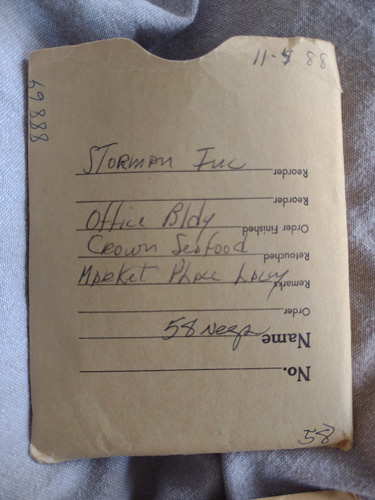 11-4 88
88869
Storman Inc
Reorder
Reorder
Office Bldy
Order Finished
Crown Seafood
Retouched
Market Place Lacy
Remarks
Order
58 Negs
Name
No.
58